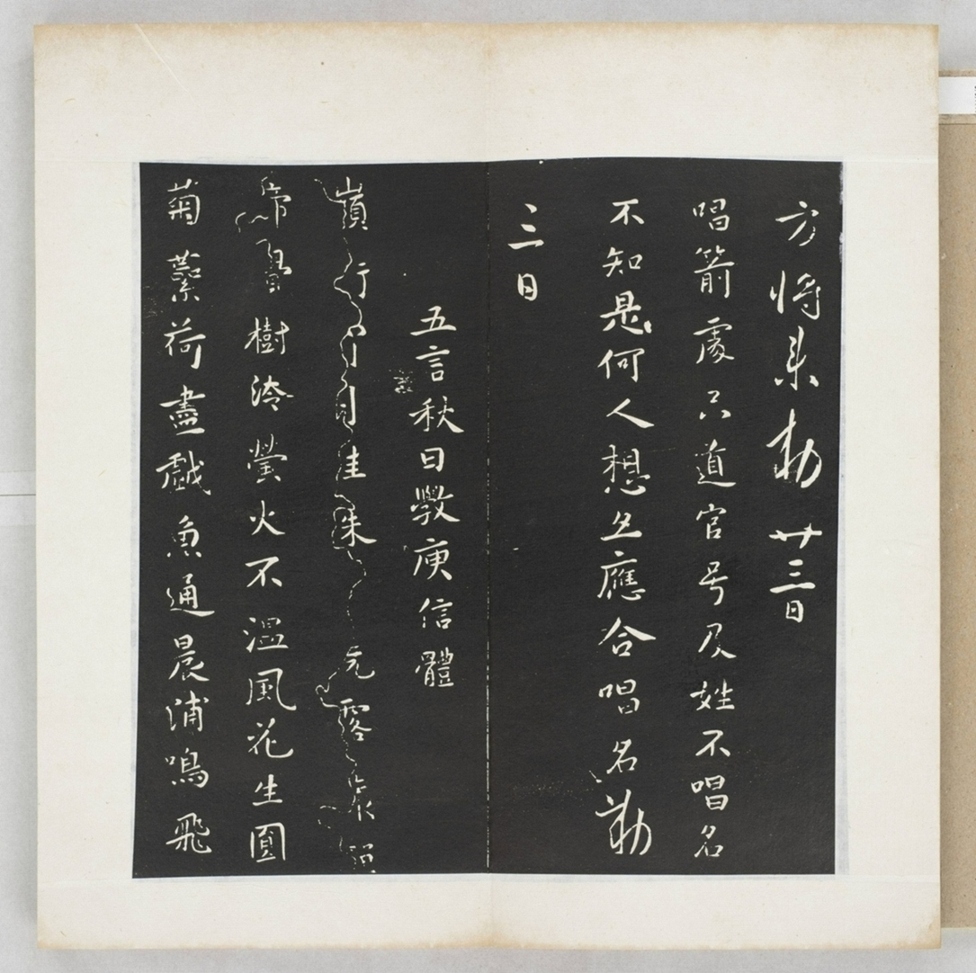 方將來勅 廿三日
唱箭處只道官号及姓不唱名
不知是何人想應合唱名勅
三日
五言秋日斆庾信體
嶺月桂珠露叢
啼覺樹冷螢火不溫風花生圓
菊蘂荷盡戲魚通晨浦鳴飛